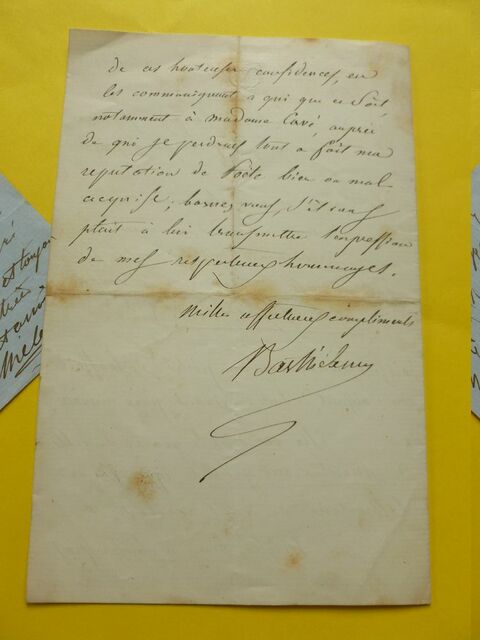 de ces honteuses confidences, en
les communiquant à qui que ce soit,
notamment à madame Cavé, auprès
de qui je perdrais tout à fait ma
reputation de Poète bien ou mal
acquise; bornez vous, s'il vous
plait à lui transmettre l'expression
de mes respectueux hommages.
Mille affectueux compliments
Barthélemy